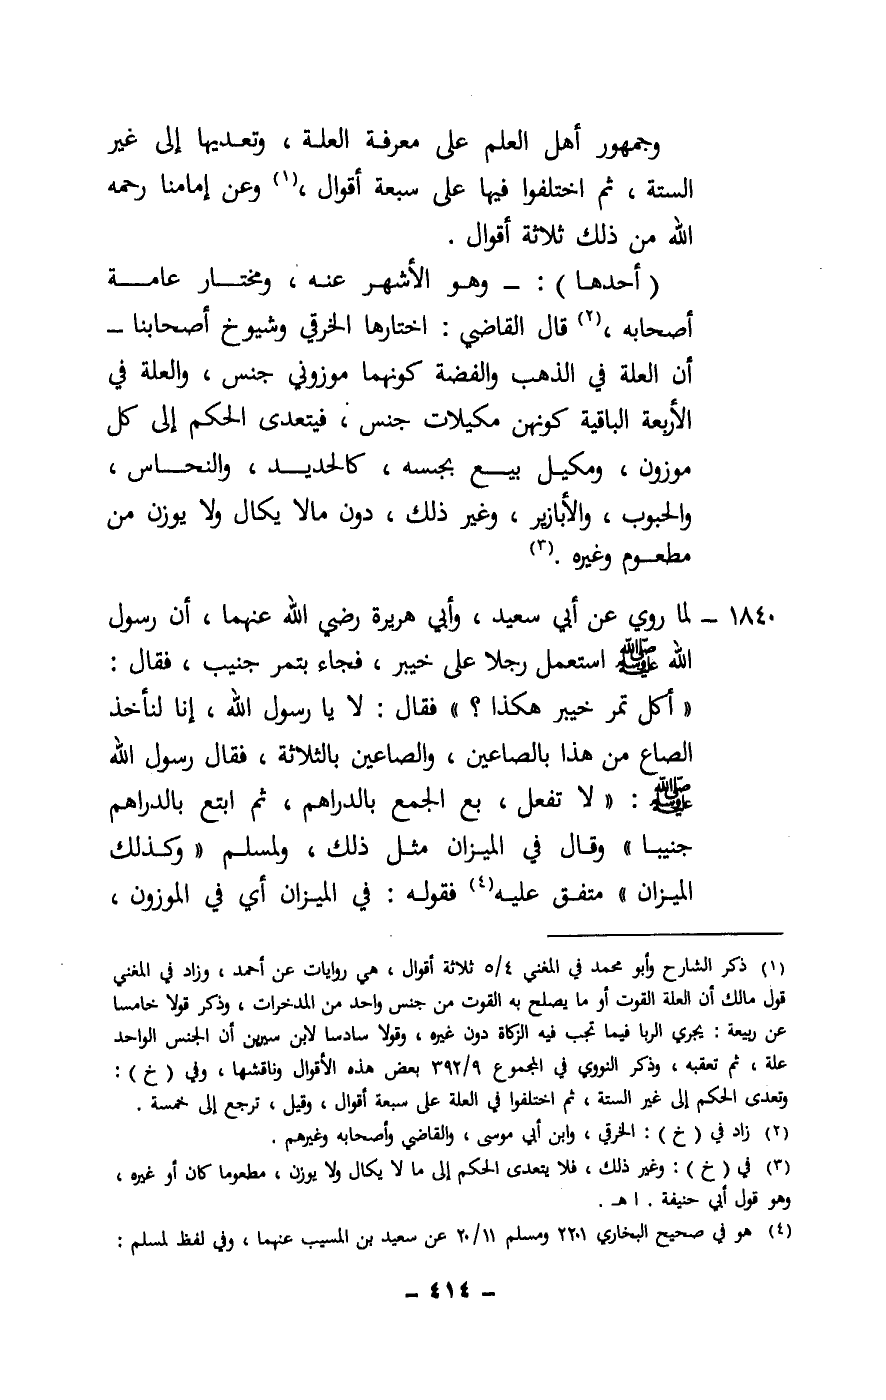 وجمهور أهل العلم على معرفة العلة ، وتعديها إلى غير
الستة ، ثم اختلفوا فيها على سبعة أقوال ،(١) وعن إمامنا رحمه
الله من ذلك ثلاثة أقوال .
( أحدها ) : ــ وهو الأشهر عنه ، ومختار عامة
أصحابه ،(٢) قال القاضي : اختارها الخرقي وشيوخ أصحابنا ــ
أن العلة في الذهب والفضة كونهما موزوني جنس ، والعلة في
الأربعة الباقية كونهن مكيلات جنس ، فيتعدى الحكم إلى كل
موزون ، ومكيل بيع بجنسه ، كالحديد ، والنحاس ،
والحبوب ، والأبازير ، وغير ذلك ، دون مالا يكال ولا يوزن من
مطعوم وغيره .(٣)
١٨٤٠ ــ لما روي عن أبي سعيد ، وأبي هريرة رضي الله عنهما ، أن رسول
الله ﷺ استعمل رجلا على خيبر ، فجاء بتمر جنيب ، فقال :
« أكل تمر خيبر هكذا ؟ » فقال : لا يا رسول الله ، إنا لنأخذ
الصاع من هذا بالصاعين ، والصاعين بالثلاثة ، فقال رسول الله
ﷺ : « لا تفعل ، بع الجمع بالدراهم ، ثم ابتع بالدراهم
جنيبا » وقال في الميزان مثل ذلك ، ولمسلم « وكذلك
الميزان » متفق عليه(٤) فقوله : في الميزان أي في الموزون ،
(١) ذكر الشارح وأبو محمد في المغني ٥/٤ ثلاثة أقوال ، هي روايات عن أحمد ، وزاد في المغني
قول مالك أن العلة القوت أو ما يصلح به القوت من جنس واحد من المدخرات ، وذكر قولا خامسا
عن ربيعة : يجري الربا فيما تجب فيه الزكاة دون غيره ، وقولا سادسا لابن سيرين أن الجنس الواحد
علة ، ثم تعقبه ، وذكر النووي في المجموع ٣٩٢/٩ بعض هذه الأقوال وناقشها ، وفي ( خ ) :
وتعدى الحكم إلى غير الستة ، ثم اختلفوا في العلة على سبعة أقوال ، وقيل ، ترجع إلى خمسة .
(٢) زاد في ( خ ) : الخرقي ، وابن أبي موسى ، والقاضي وأصحابه وغيرهم .
(٣) في ( خ ) : وغير ذلك ، فلا يتعدى الحكم إلى ما لا يكال ولا يوزن ، مطعوما كان أو غيره ،
وهو قول أبي حنيفة . ا هـ .
(٤) هو في صحيح البخاري ٢٢٠١ ومسلم ٢٠/١١ عن سعيد بن المسيب عنهما ، وفي لفظ لمسلم :
ــ ٤١٤ ــ